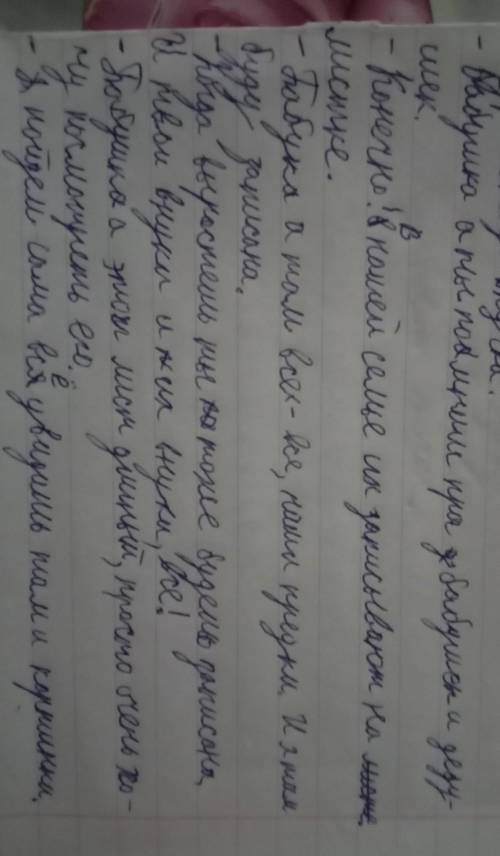 - Бабушка а ты помнишь пра бабушек и деду-
шек.
- Конечно! В нашей семье их записывают на
листце.
- Бабука а там всех-все, наши предки. И я там
буду записана.
- Когда вырастешь ты тоже будешь записана,
И твои внуки и их внуки, все!
- Бабушка а этот лист длинный, просто очень хо-
чу посмотреть его.
- Я пойдем сама всё увидишь там и картинки.